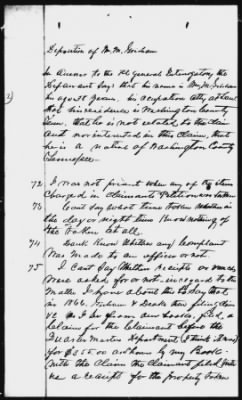 Deposition of M. M. Graham
In answer to the 1st General Interrogatory the
Deponent says that his name is M. M. Graham
his age 28 years, his occupation Atty at Law
that his residence is Washington County
Tenn. that he is not related to the claim-
ant nor interested in this Claim, that
he is a native of Washington County
Tennessee.
72 I was not present when any of the items
Charged in Claimants Petition was taken
73 Cant say what time taken Whether in
the day or night time Know nothing of
the taken at all.
74 Dont Know Whether any Complaint
Was made to an officer or not.
75 I Cant Say Whether Receipts or were
were asked for or not in regard to this
Matter I
in 1866.
I See from my books, filed a
Claim for the Claimant before the
Quarter Master Department (I think it was)
for $255.00 and hours by my Book.
With the Claim the Claimant filed
a receipt for the property taken